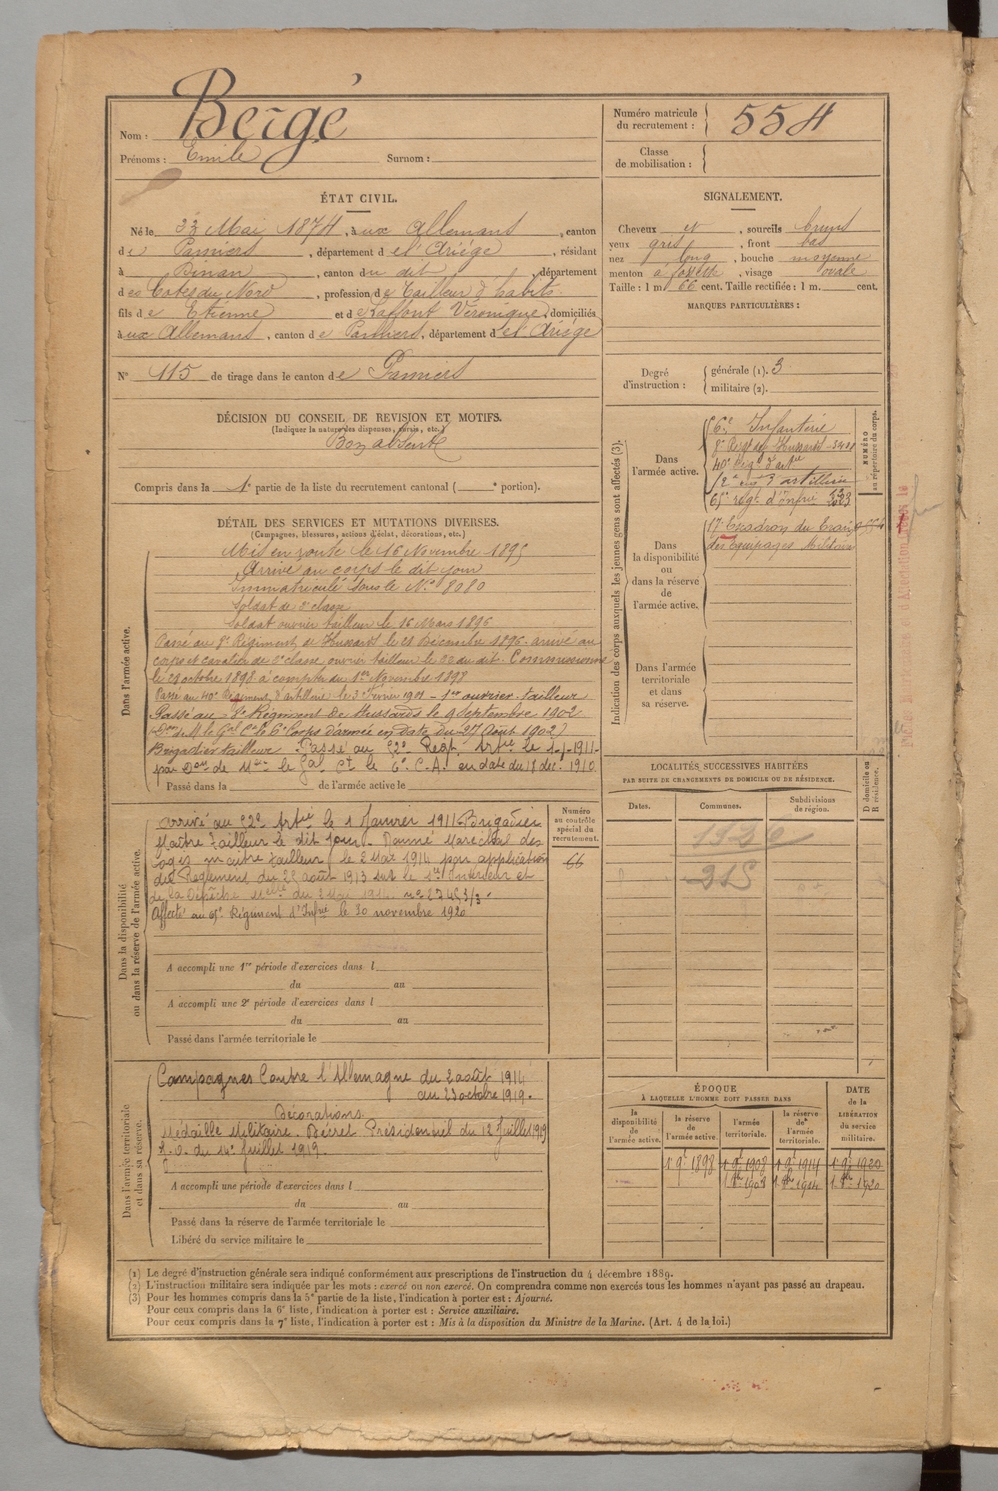 Nom : Bergé
Prénoms : Emile Surnom :
Numéro matricule du recrutement : 554
Classe de mobilisation :
ÉTAT CIVIL.
Né le 23 Mai 1874, à ux Allemans, canton
de Pamiers, département de l'Ariège, résidant
à Dinan, canton du dit, département
des Cotes du Nord, profession de tailleur d'habits
fils de Etienne et de Laffont Véronique, domiciliés
à ux Allemans, canton de Pamiers, département de l'Ariège
N° 115 de tirage dans le canton de Pamiers
DÉCISION DU CONSEIL DE REVISION ET MOTIFS.
(Indiquer la nature des dispenses, sursis, etc.)
Bon absent
Compris dans la 1e partie de la liste du recrutement cantonal ( e portion).
SIGNALEMENT.
Cheveux et, sourcils bruns
yeux gris, front bas
nez long, bouche moyenne
menton à fossette, visage ovale
Taille : 1 m 66 cent. Taille rectifiée : 1 m. cent.
MARQUES PARTICULIÈRES :
Degré d'instruction :
générale (1). 3
militaire (2).
DÉTAIL DES SERVICES ET MUTATIONS DIVERSES.
(Campagnes, blessures, actions d'éclat, décorations, etc.)
Dans l'armée active.
Mis en route le 16 Novembre 1895
Arrivé au corps le dit jour
Immatriculé sous le N° 8080
Soldat de 2e classe
Soldat ouvrier tailleur le 16 Mars 1896
Passé au 8e Régiment de Hussards le 21 Décembre 1896 arrivé au
corps et cavalier de 2e classe ouvrier tailleur le du dit. Commissionné
le 21 octobre 1898 à compter du 1er Novembre 1898
Passé au 40e Régiment d'artillerie le 3 Février 1901 - 1er ouvrier tailleur
Passé au 8e Régiment de Hussards le 9 Septembre 1902
(Don de M le Gal Ct le 6e Corps d'armée en date du 27 Août 1902)
Brigadier tailleur. Passé au 22e Regt Artie le 1-1-1911
par Don de Mr le Gal Ct le 6e C.A. en date du 18 déc. 1910
Passé dans la de l'armée active le
Dans la disponibilité ou dans la réserve de l'armée active.
arrivé au 22e Artie le 1 Janvier 1911 Brigadier
Maître tailleur le dit jour. Nommé Maréchal des
logis maitre tailleur le 2 Mai 1914 par application
du Règlement du 25 août 1913 sur le Sce Intérieur et
de la Dépêche Melle du 2 Mai 1914
Affecté au 65e Régiment d'Infie le 30 novembre 1920
A accompli une 1re période d'exercices dans l
du au
A accompli une 2e période d'exercices dans l
du au
Passé dans l'armée territoriale le
Numéro au contrôle spécial du recrutement.
66
Dans l'armée territoriale et dans sa réserve.
Campagnes Contre l'Allemagne du 2 août 1914
au 23 octobre 1919.
Décorations
Médaille Militaire. Décret Présidentiel du 12 Juillet 1919
J.O. du 14 Juillet 1919
A accompli une période d'exercices dans l
du au
Passé dans la réserve de l'armée territoriale le
Libéré du service militaire le
Indication des corps auxquels les jeunes gens sont affectés (3).
Dans l'armée active.
6e Infanterie
8e Régt de Hussards
40e Régt d'artie
22e rég. d'artillerie
65e régt d'Infie
Dans la disponibilité ou dans la réserve de l'armée active.
17e Escadron du Train
des Equipages Militaires
Dans l'armée territoriale et dans sa réserve.
NUMÉRO au répertoire du corps.
LOCALITÉS SUCCESSIVES HABITÉES
PAR SUITE DE CHANGEMENTS DE DOMICILE OU DE RÉSIDENCE.
Dates. Communes. Subdivisions de région. D domicile ou R résidence.
1936
315
ÉPOQUE
À LAQUELLE L'HOMME DOIT PASSER DANS
la disponibilité de l'armée active.
la réserve de l'armée active.
l'armée territoriale.
la réserve de l'armée territoriale.
DATE de la LIBÉRATION du service militaire.
1 9e 1898 1 9e 1908 1 9e 1914 1 9e 1920
(1) Le degré d'instruction générale sera indiqué conformément aux prescriptions de l'instruction du 4 décembre 1889.
(2) L'instruction militaire sera indiquée par les mots : exercé ou non exercé. On comprendra comme non exercés tous les hommes n'ayant pas passé au drapeau.
(3) Pour les hommes compris dans la 5e partie de la liste, l'indication à porter est : Ajourné.
Pour ceux compris dans la 6e liste, l'indication à porter est : Service auxiliaire.
Pour ceux compris dans la 7e liste, l'indication à porter est : Mis à la disposition du Ministre de la Marine. (Art. 4 de la loi.)